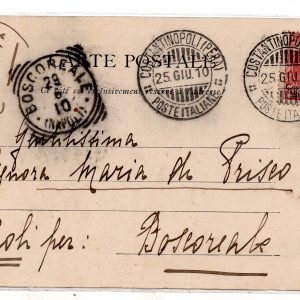 CARTE POSTALE
Ce côté est exclusivement réservé à l'adresse.
BOSCOREALE
(NAPOLI)
COSTANTINOPOLI (PERA)
25.GIU.10
POSTE ITALIANE
COSTANTINOPOLI
25.GIU.1
POSTE ITALIAN
Gentilissima
gnora Maria di Prisco
oli per: Boscoreale